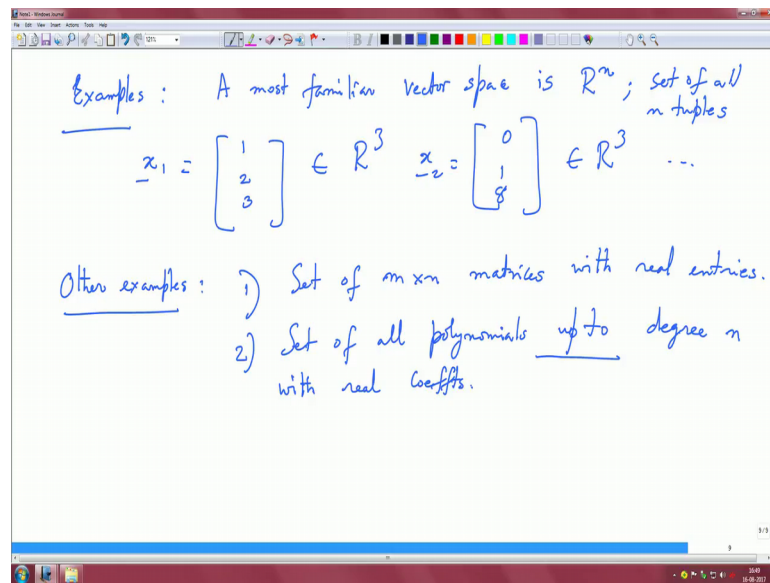 Note1 - Windows Journal
File Edit View Insert Actions Tools Help
121%
B I
Examples : A most familiar vector space is R^n ; set of all
n tuples
x_1 = [1 2 3] ∈ R^3 x_2 = [0 1 8] ∈ R^3 ...
Other examples : 1) Set of m x n matrices with real entries.
2) Set of all polynomials up to degree n
with real coeffts.
9/9
9
16:49